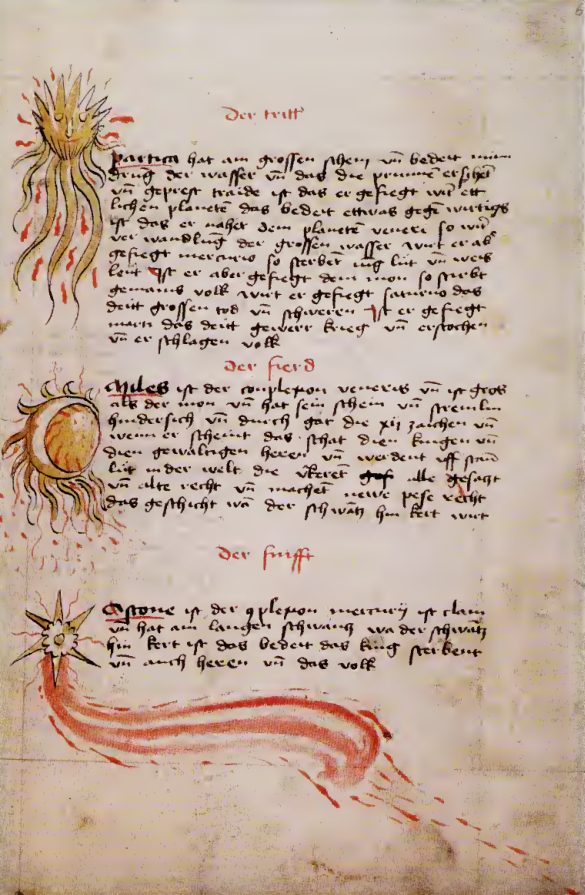 6
Der tritt
Partica hat am grossen schein vñ bedeit min
drug der wasser vñ das die prunnē er schei
vñ geprest traide ist das er gefiegt wirt ett
lichen planetē das bedeit ettwas gegē wirtigs
Ist das er nahet dem planetē veneri so wirt
ver wandlūg der grossen wasser wirt er ab
gefiegt mercurio so sterbet iūg lüt vñ weis
leüt Ist er aber gefiegt dem mon so stirbt
gemains volk wirt er gefiegt saturno das
deitt grossen tod vñ schweren Ist er gefiegt
marti das deitt gewerr krieg vñ erstochen
vñ er schlagen volk
Der fierd
Miles ist der conplexion veneris vñ ist gros
als der mon vñ hat sein schein vñ stremlin
hindersich vñ durch gat die xij zaichen vñ
wenn er scheint das schat dien kingen vñ
dien gewaltigen heren vñ werdent uff stan
lüt in der welt die v̄kerēt alle gesatzt
vñ alte recht vñ machet newe pese recht
das geschicht wā der schwātz hin kert wirt
Der finfft
Astone ist der 9plexion mercurij ist clain
vñ hat ain langen schwantz wa der schwātz
hin kert ist das bedeit das king sterbent
vñ auch heren vñ das volk